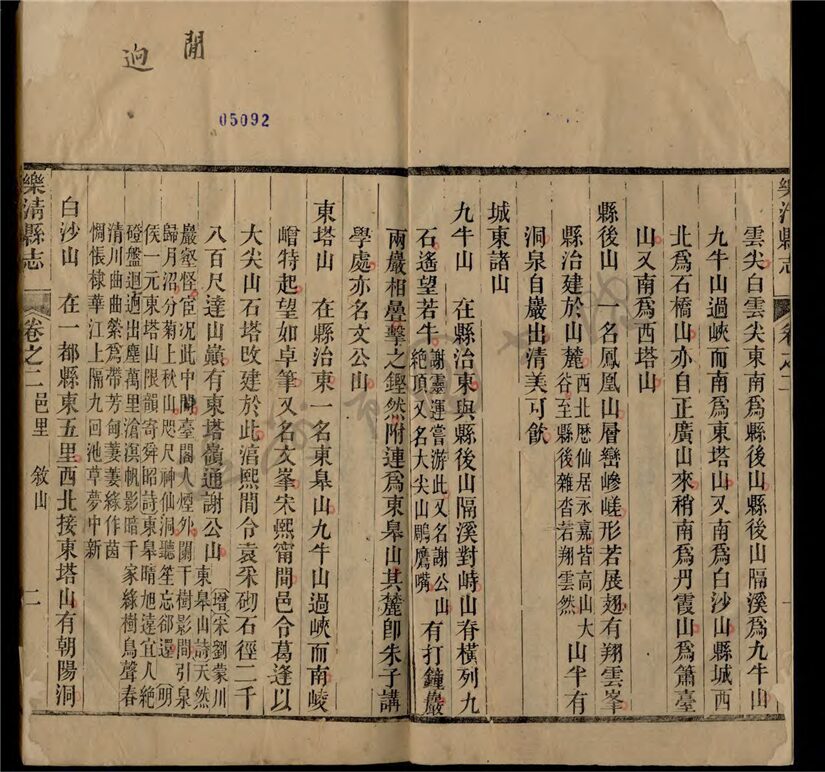 閒
逈
05092
樂清縣志
卷之二
一
雲尖白雲尖東南爲縣後山縣後山隔溪爲九牛山
九牛山過峽而南爲東塔山又南爲白沙山縣城西
北爲石橋山亦自正廣山來稍南爲丹霞山爲簫臺
山又南爲西塔山
縣後山 一名鳳凰山層巒嵾嵯形若展翅有翔雲峯
縣治建於山麓西北歷仙居永嘉皆高山大
谷至縣後雜沓若翔雲然山半有
洞泉自巖出清美可飮
城東諸山
九牛山 在縣治東與縣後山隔溪對峙山脊橫列九
石遙望若牛謝靈運嘗游此又名謝公山
絶頂又名大尖山鵰鷹嘴有打鐘巖
兩巖相疊擊之鏗然附連爲東皋山其麓卽朱子講
學處亦名文公山
東塔山 在縣治東一名東皋山九牛山過峽而南崚
嶒特起望如卓筆又名文峯宋熙甯間邑令葛逢以
大尖山石塔改建於此淳熙間令袁采砌石徑二千
八百尺達山巔有東塔嶺通謝公山增宋劉蒙川
東皋山詩天然
巖壑怪宦况此中閒臺閣人煙外闌干樹影間引泉
歸月沼分菊上秋山咫尺神仙洞聽笙忘卻還明
侯一元東塔山限韻寄舜昭詩東皋晴旭逺宜人絶
磴盤迴逈出塵萬里滄溟帆影暗千家綠樹鳥聲春
清川曲曲縈爲帶芳甸萋萋綠作茵
惆悵棣華江上隔九回池草夢中新
白沙山 在一都縣東五里西北接東塔山有朝陽洞
樂清縣志
卷之二 邑里 敘山
二